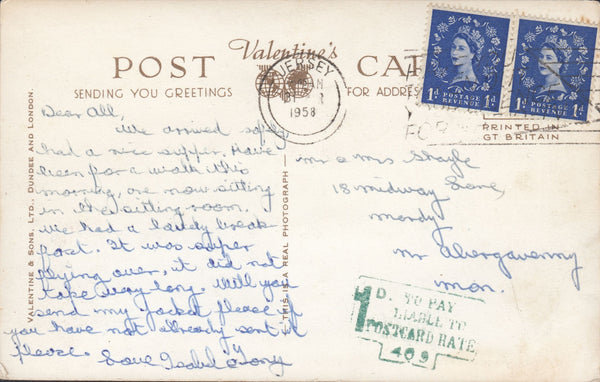 Valentine's
POST CARD
SENDING YOU GREETINGS
FOR ADDRESS
JERSEY
1958
1D POSTAGE REVENUE 1D
1D POSTAGE REVENUE 1D
PRINTED IN
GT BRITAIN
VALENTINE & SONS, LTD., DUNDEE AND LONDON.
THIS IS A REAL PHOTOGRAPH
Dear All,
We arrived safely
had a nice supper. Have
been for a walk this
morning, are now sitting
in the sitting room.
We had a lovely break-
fast. It was super
flying over, it did not
take very long. Will you
send my jacket please if
you have not already sent it
please. Love Isobel & Tony
Mr & Mrs
18 Midway Lane,
Mardy
Nr Abergavenny
Mon.
1D. TO PAY
LIABLE TO
POSTCARD RATE
409